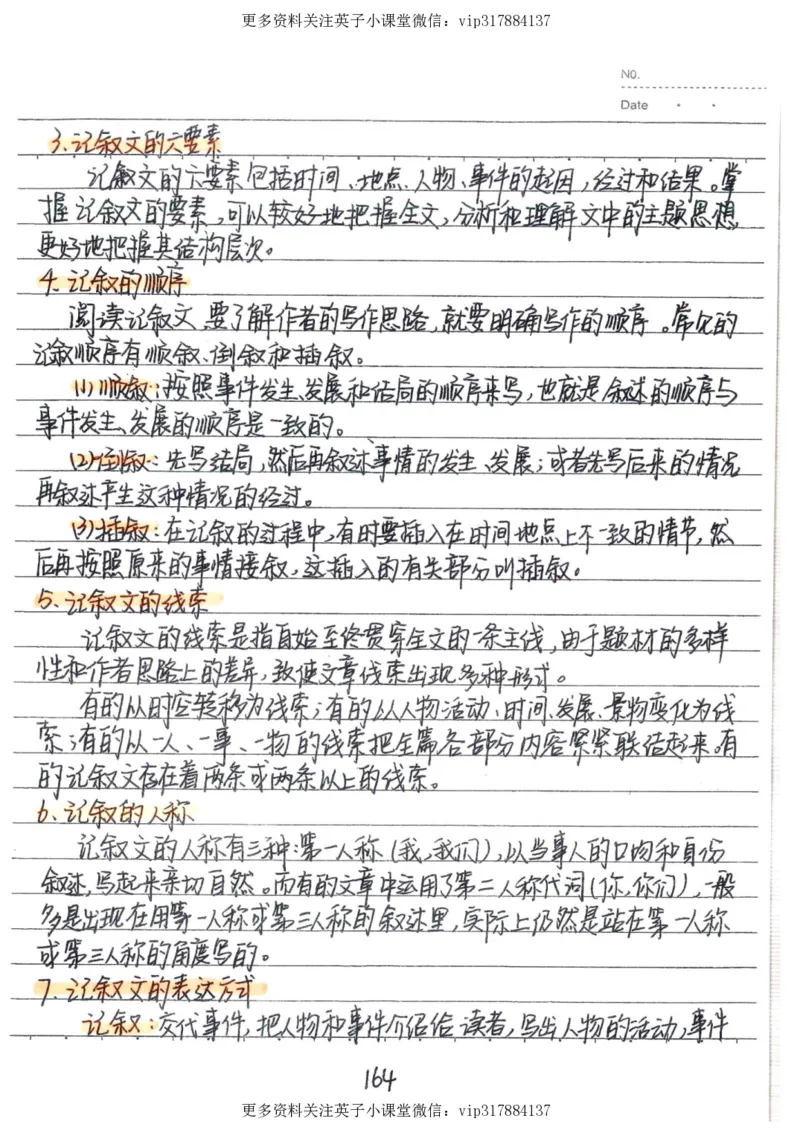 更多资料关注英子小课堂微信：vip317884137
NO.
Date
3.记叙文的六要素
记叙文的六要素包括时间、地点、人物、事件的起因，经过和结果。掌
握记叙文的要素，可以较好地把握全文，分析和理解文中的主题思想，
更好地把握其结构层次。
4.记叙的顺序
阅读记叙文，要了解作者的写作思路，就要明确写作的顺序。常见的
记叙顺序有顺叙、倒叙和插叙。
(1)顺叙：按照事件发生、发展和结局的顺序来写，也就是叙述的顺序与
事件发生、发展的顺序是一致的。
(2)倒叙：先写结局，然后再叙述事情的发生、发展；或者先写后来的情况
再叙述产生这种情况的经过。
(3)插叙：在记叙的过程中，有时要插入在时间地点上不一致的情节，然
后再按照原来的事情接叙，这插入的有关部分叫插叙。
5、记叙文的线索
记叙文的线索是指自始至终贯穿全文的一条主线，由于题材的多样
性和作者思路上的差异，致使文章线索出现多种形式。
有的以时空转移为线索；有的以人物活动、时间、发展、景物变化为线
索；有的以一人、一事、一物的线索把全篇各部分内容紧紧联结起来。有
的记叙文存在着两条或两条以上的线索。
6、记叙的人称
记叙文的人称有三种：第一人称（我，我们），以当事人的口吻和身份
叙述，写起来亲切自然。而有的文章中运用了第二人称代词（你，你们），一般
多是出现在用第一人称或第三人称的叙述里，实际上仍然是站在第一人称
或第三人称的角度写的。
7.记叙文的表达方式
记叙：交代事件，把人物和事件介绍给读者，写出人物的活动，事件
164
更多资料关注英子小课堂微信：vip317884137